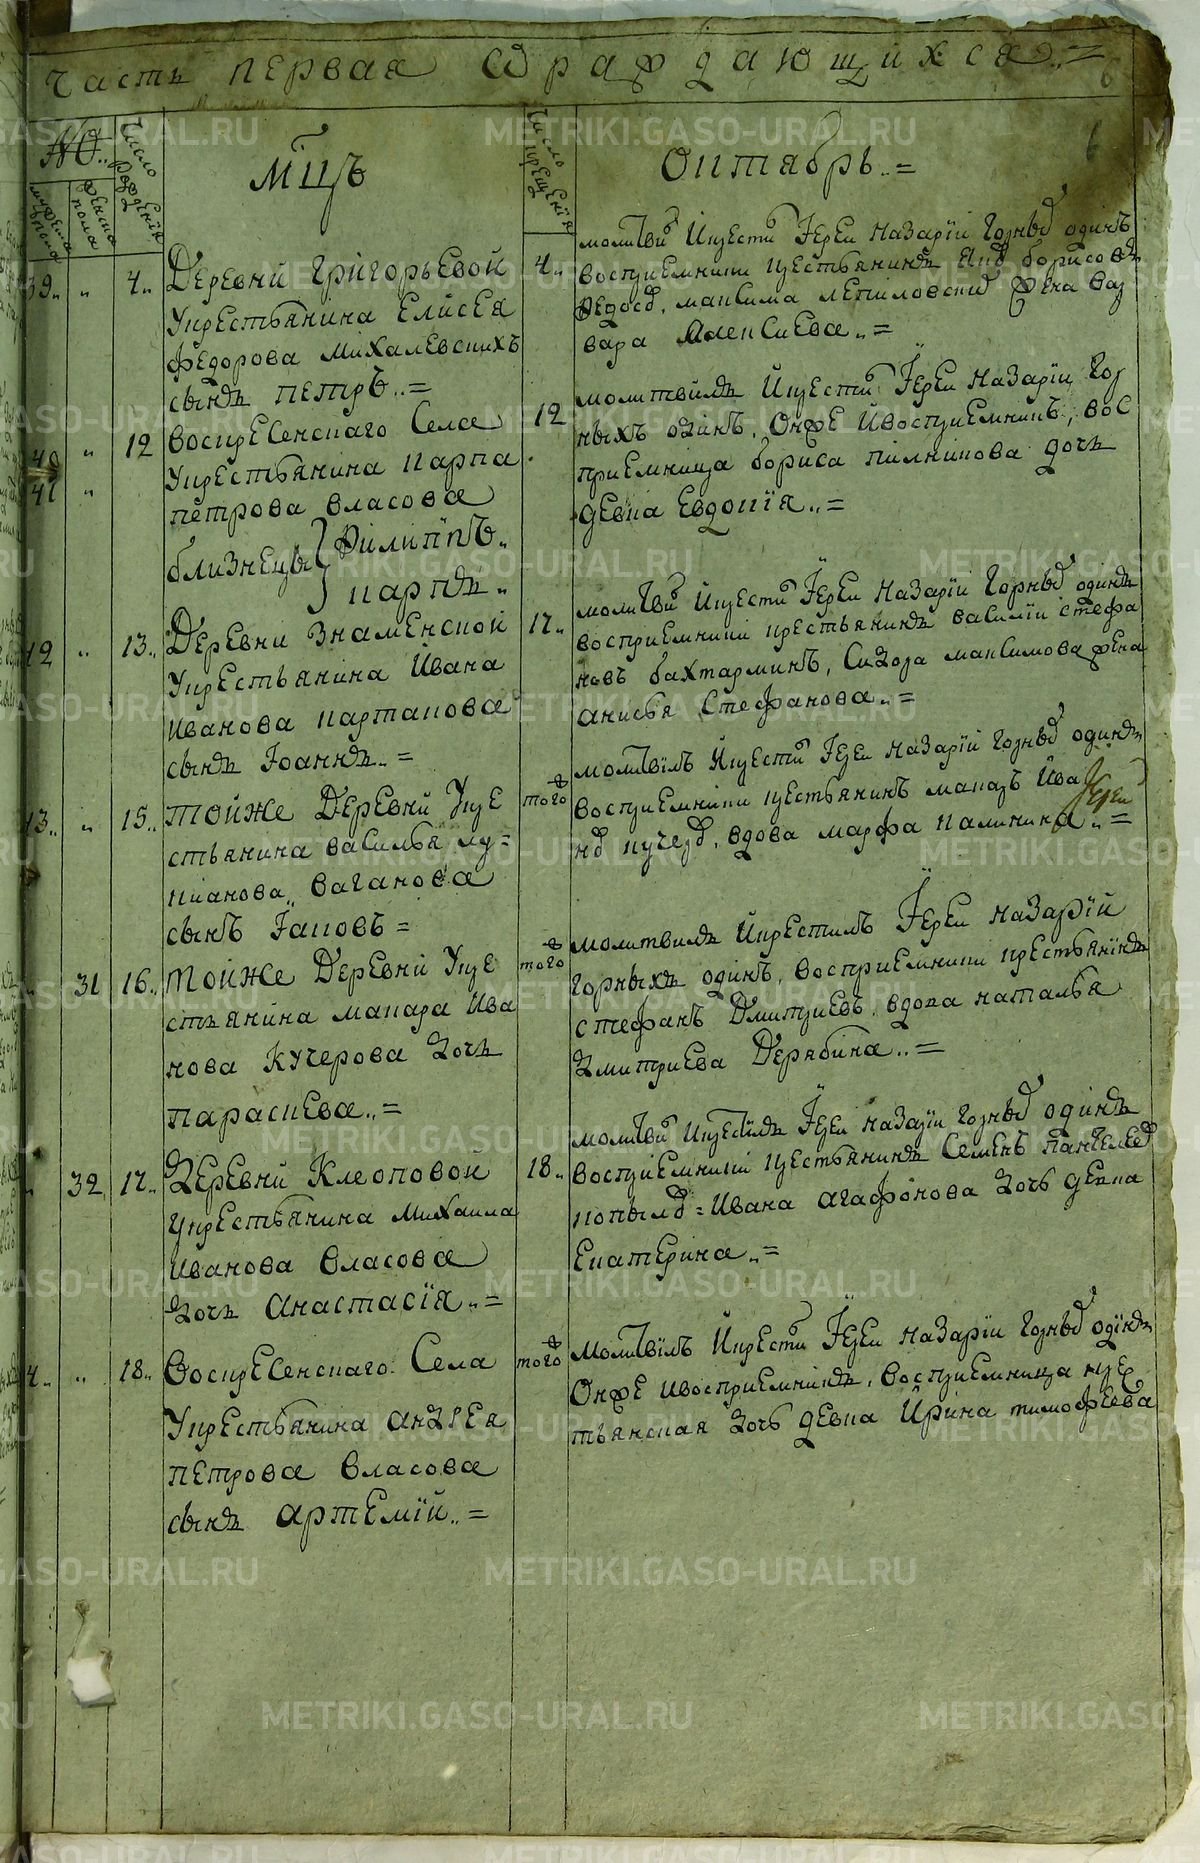 часть первая о раждающихся..=
6
6
№..
мужеска пола
женска пола
Число рождения
Мцъ
Число крещения
Октябрь..=
39.. „ 4..
Деревни Григорьевой
У крестьянина Елисея
федорова Михалевскихъ
сынъ петръ..=
4..
молитви И крести Іереи Назарїи Горныхъ одинъ
восприемники крестьянинъ борисовъ
Максима жена вар
вара Алексиева..=
40 „ 12
41 „
воскресенскаго Села
У крестьянина карпа
петрова власова
близнецы филиппъ..
карпъ..
12
молитвилъ И крести Іереи Назарїи Гор
ныхъ одинъ, Онже И восприемникъ, вос
приемница бориса пилникова дочь
девка Евдокїя..=
42 „ 13..
Деревни Знаменской
У крестьянина Ивана
Иванова картапова
сынъ Іоаннъ..=
17..
молитви И крести Іереи Назарїи Горныхъ одинъ
восприемники крестьянинъ василїи стефа
новъ бахтарминъ, Сидора максимова жена
анисья Стефанова..=
43.. „ 15..
тойже Деревни У кре
стьянина василья лу=
кианова.. Ваганова
сынъ Іаковъ=
того ж
молитвилъ И крести Іереи Назарїй Горныхъ одинъ
восприемники крестьянинъ макаръ Ива
Іереи
нов кучеров, вдова марфа калинина..=
„ 31 16..
тойже Деревни У кре
стьянина макара Ива
нова Кучерова дочь
параскева..=
того ж
молитвилъ И крестилъ Іереи Назарїй
горныхъ одинъ, восприемники крестьянинъ
стефанъ Дмитриевъ, вдова наталья
дмитриева Дерябина..=
„ 32 17..
Деревни Клеоповой
У крестьянина Михаила
Иванова власова
дочь Анастасїя..=
18..
молитви И крестилъ Іереи Назарїи Горныхъ одинъ
восприемники крестьянинъ Семенъ пантелеев
копылов = Ивана агафонова дочь девка
Екатерина..=
4.. „ 18..
воскресенскаго Села
У крестьянина андрея
петрова власова
сынъ артемїй..=
того ж
молитвилъ И крести Іереи Назарїи Горныхъ одинъ
Онже и восприемникъ, восприемница кре
тьянская дочь девка Ирина тимофеева
METRIKI.GASO-URAL.RU